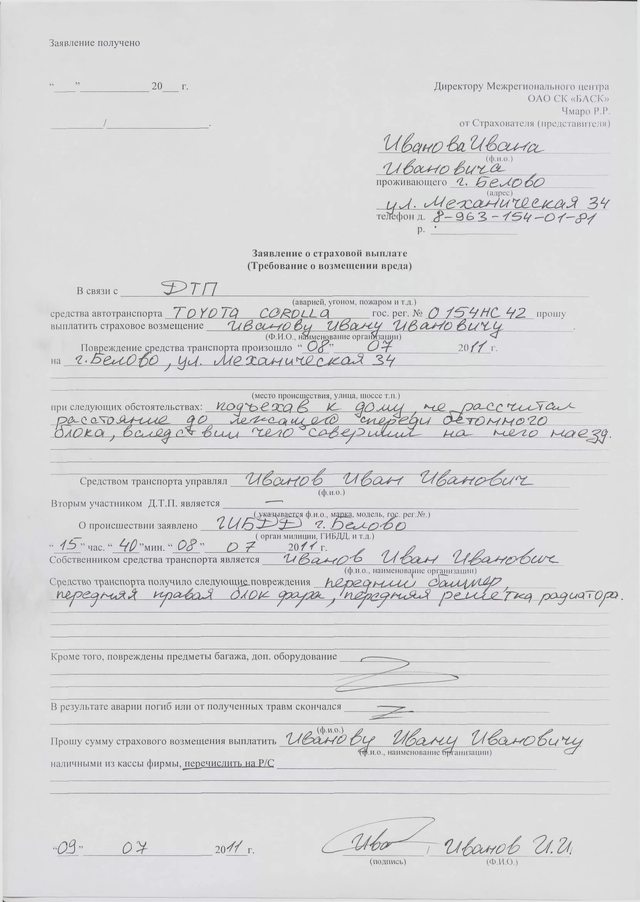 Заявление получено
“___”____________ 20___ г.
_________/_________________.
Директору Межрегионального центра
ОАО СК «БАСК»
Чмаро Р.Р.
от Страхователя (представителя)
Иванова Ивана
(ф.и.о.)
Ивановича
проживающего г. Белово
(адрес)
ул. Механическая 34
телефон д. 8-963-154-01-81
р.
Заявление о страховой выплате
(Требование о возмещении вреда)
В связи с ДТП
(аварией, угоном, пожаром и т.д.)
средства автотранспорта TOYOTA COROLLA гос. рег. № О 154 НС 42 прошу
выплатить страховое возмещение Иванову Ивану Ивановичу
(Ф.И.О., наименование организации)
Повреждение средства транспорта произошло “08” 07 2011 г.
на г. Белово, ул. Механическая 34
(место происшествия, улица, шоссе т.п.)
при следующих обстоятельствах: подъехав к дому, не рассчитал
расстояние до лежащего спереди бетонного
блока, вследствии чего совершил на него наезд.
Средством транспорта управлял Иванов Иван Иванович
(ф.и.о.)
Вторым участником Д.Т.П. является —
( указывается ф.и.о., марка, модель, гос. рег.№.)
О происшествии заявлено ГИБДД г. Белово
( орган милиции, ГИБДД, и т.д.)
“15” час. “40” мин. “08” 07 2011 г.
Собственником средства транспорта является Иванов Иван Иванович
(ф.и.о., наименование организации)
Средство транспорта получило следующие повреждения передний бампер,
передняя правая блок фара, передняя решетка радиатора.
Кроме того, повреждены предметы багажа, доп. оборудование
В результате аварии погиб или от полученных травм скончался
(ф.и.о.)
Прошу сумму страхового возмещения выплатить Иванову Ивану Ивановичу
(ф.и.о., наименование организации)
наличными из кассы фирмы, перечислить на Р/С
“09” 07 2011 г. Ива Иванов И.И.
(подпись) (Ф.И.О.)